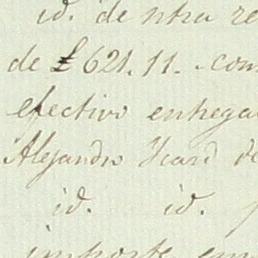 id. de ntra re
de £621.11. - con
efectivo entrega
Alejandro Icard de
id. id. p
importe em